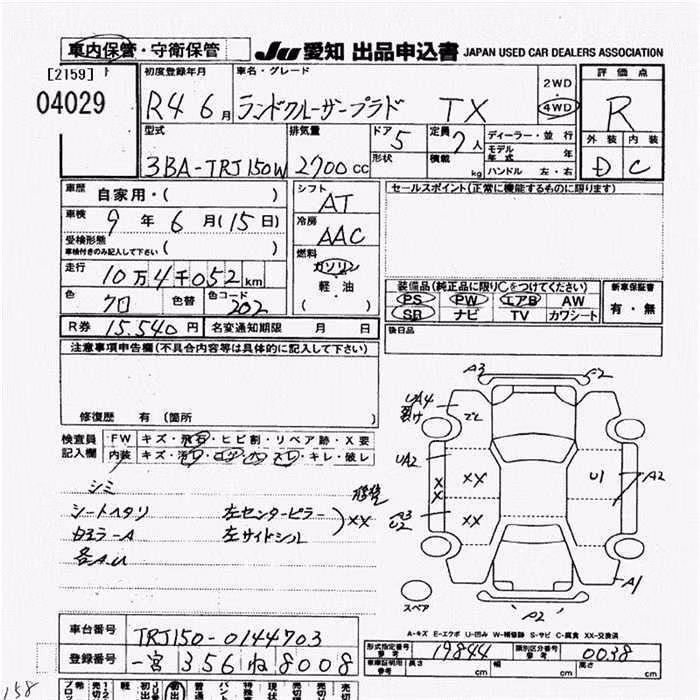 車内保管・守衛保管 JU 愛知 出品申込書 JAPAN USED CAR DEALERS ASSOCIATION
[2159]
04029
初度登録年月 車名・グレード 2WD 4WD 評価点
R4 6月 ランドクルーザープラド TX R
型式 排気量 ドア 5 定員 7人 ディーラー・並行 外装 内装
3BA-TRJ150W 2700cc 形状 積載 kg モデル年式 年 D C
ハンドル 左・右
車歴 自家用・( ) シフト AT セールスポイント(正常に機能するものに限ります)
車検 9年 6月(15日) 冷房 AAC
受検形態 車検付きのみ記入して下さい ( )
燃料 ガソリン・軽・油 ( )
走行 10万4千052km 装備品(純正品に限り○をつけてください) 新車保証書
色 クロ 色替 色コード 202 PS PW エアB AW 有・無
SR ナビ TV カワシート
R券 15,540円 名変通知期限 月 日 後日品
注意事項申告欄(不具合内容等は具体的に記入して下さい)
修復歴 有 (箇所 )
検査員記入欄 FW キズ・飛石・ヒビ割・リペア跡・X要
内装 キズ・汚レ・コゲ・穴・スレ・キレ・破レ
シミ
シートヘタリ 左センターピラー
左サイドシル
XX
各A.U
A3
A2
UA4
裂け
UA2
XX
X
X
U1
A2
A3
U2
XX
A1
A2
スペア
A-キズ E-エクボ U-凹み W-補修跡 S-サビ C-腐食 XX-交換済
車台番号 TRJ150-0144703
登録番号 一宮 356 ね 8008
形式指定番号 19844 類別区分番号 0038
車庫証明用参考 長さ cm 幅 cm 高さ cm
158